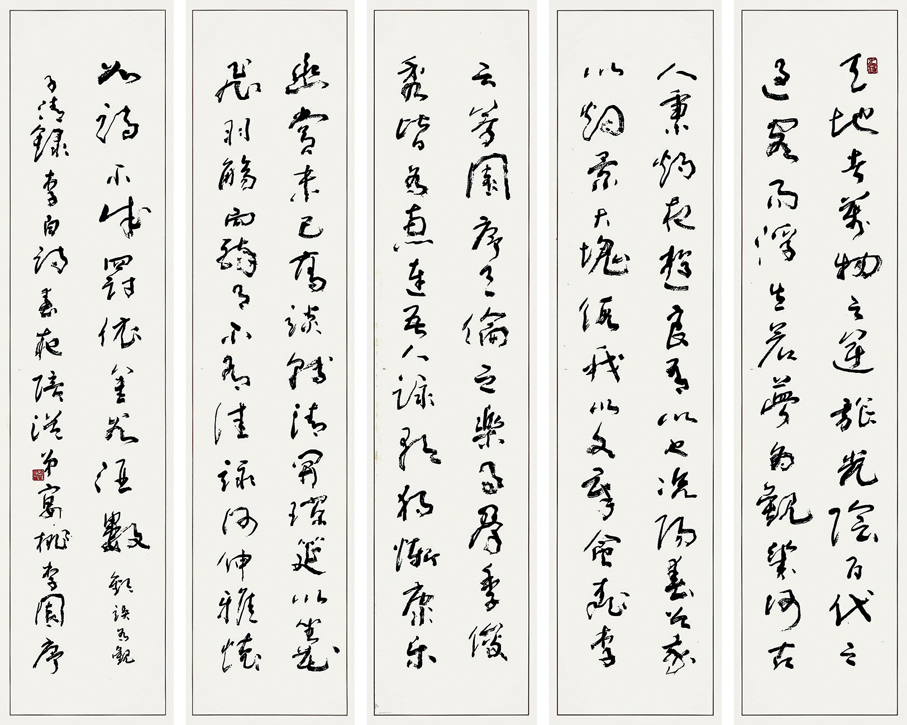 天地者萬物之逆旅光陰百代之
過客而浮生若夢為觀幾何古
人秉燭夜遊良有以也況陽春召我
以烟景大塊假我以文章會桃李
之芳園序天倫之樂事群季俊
秀皆為惠連吾人詠歌獨慚康樂
幽賞未已高談轉清開瓊筵以坐花
飛羽觴而醉月不有佳詠何伸雅懷
如詩不成罰依金谷酒數 歡誤為觀
子清録李白詩春夜陪從弟宴桃李園序